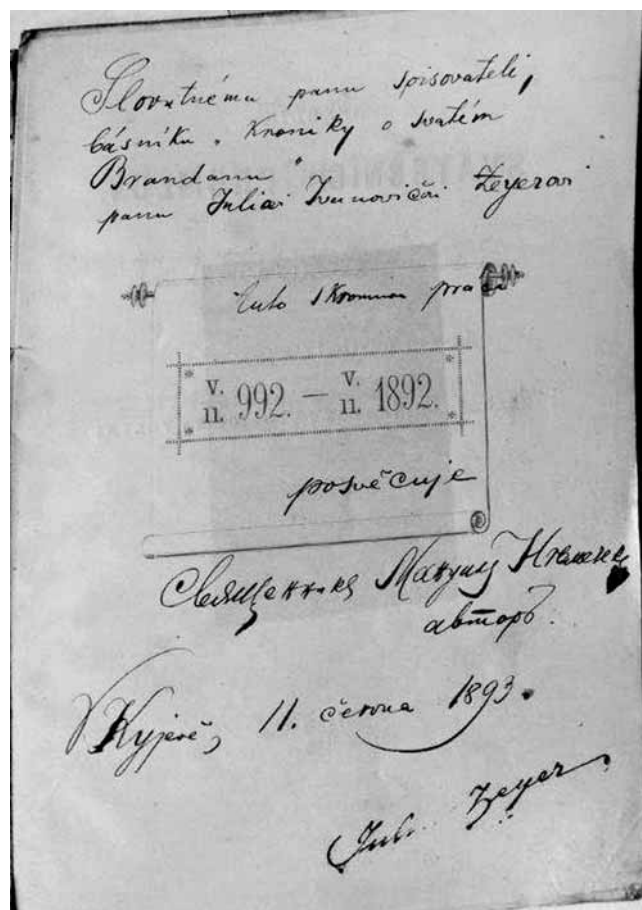 Slovutnému panu spisovateli,
básníku „Kroniky o svatém
Brandanu"
panu Juliovi Ivanoviči Zeyerovi
tuto skromnou práci
V. 992. — V. 1892.
II. II.
posvěcuje
Священникъ
авторъ.
V Kyjevě, 11. června 1893.
Jul. Zeyer